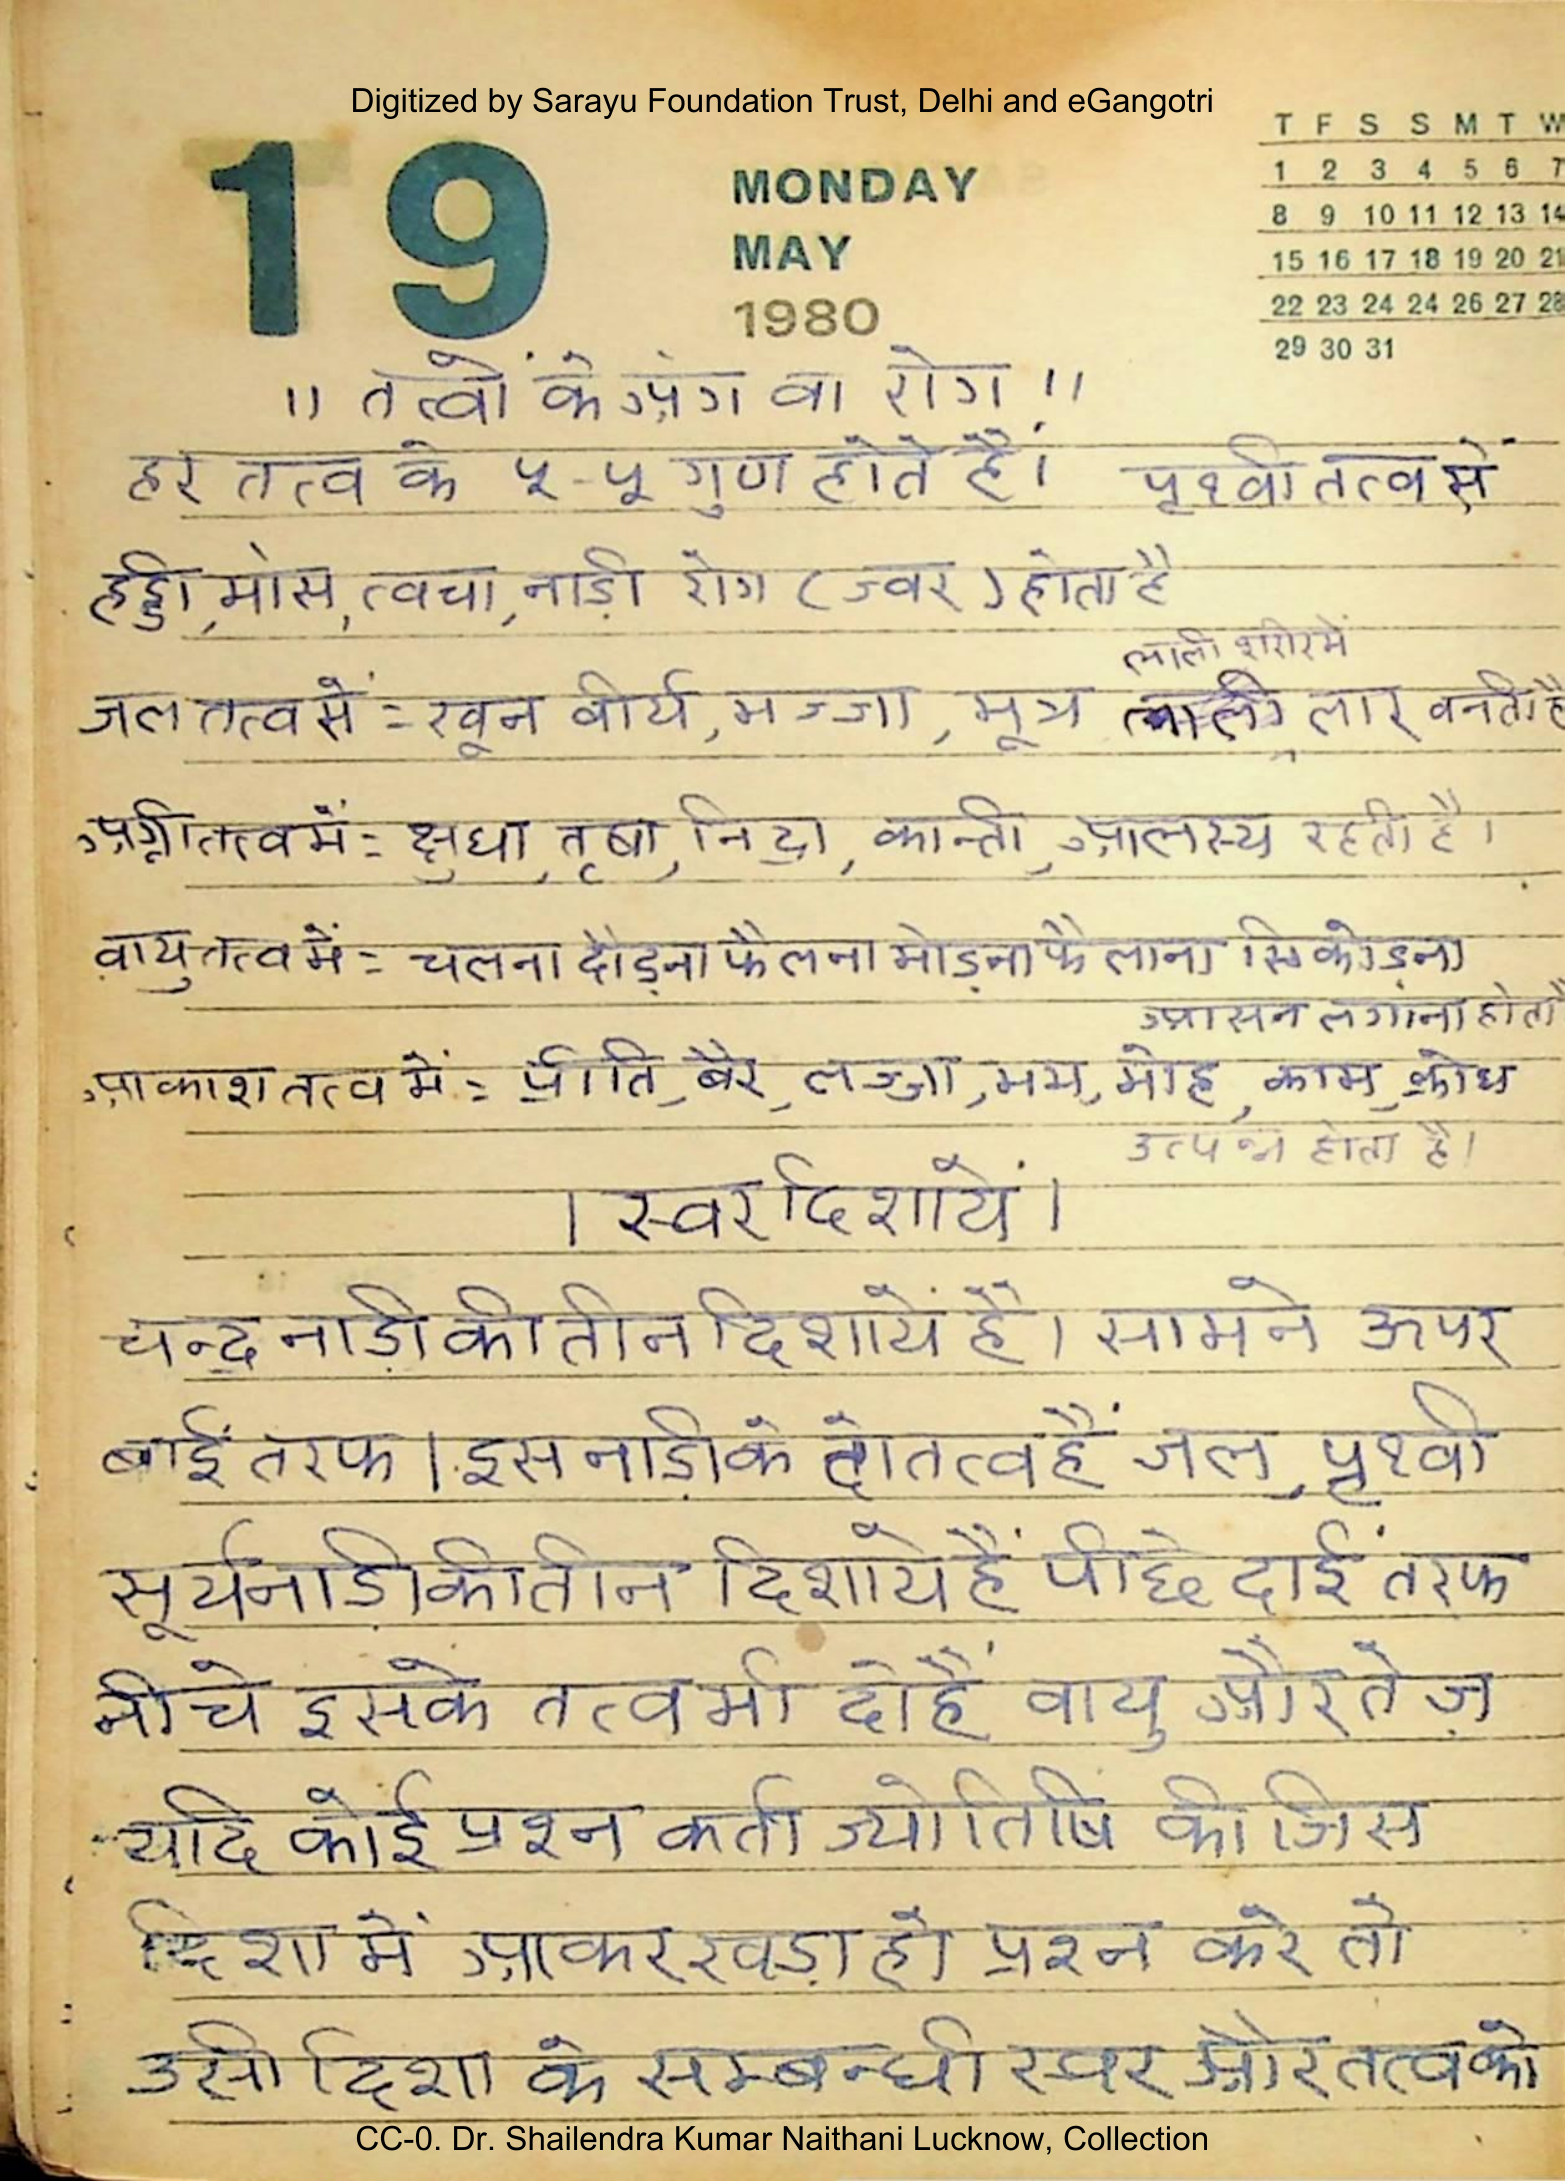 Digitized by Sarayu Foundation Trust, Delhi and eGangotri
19
MONDAY
MAY
1980
T F S S M T W
1 2 3 4 5 6 7
8 9 10 11 12 13 14
15 16 17 18 19 20 21
22 23 24 24 26 27 28
29 30 31
।। तत्वों के अंग वा रोग ।।
हर तत्व के ५-५ गुण होते हैं। पृथ्वी तत्व में
हड्डी, मांस, त्वचा, नाड़ी रोग (ज्वर) होता है
लाली शरीर में
जल तत्व में = खून वीर्य, मज्जा, मूत्र लाली, लार बनती है
अग्नी तत्व में = क्षुधा, तृषा, निद्रा, कान्ती, आलस्य रहती है।
वायु तत्व में = चलना दौड़ना फैलना मोड़ना फैलाना सिकोड़ना
आसन लगाना होता है
आकाश तत्व में = प्रीति, बैर, लज्जा, भय, मोह, काम, क्रोध
उत्पन्न होता है।
। स्वर दिशायें ।
चन्द्र नाड़ी की तीन दिशायें हैं। सामने ऊपर
बाईं तरफ। इस नाड़ी के दो तत्व हैं जल, पृथ्वी
सूर्य नाड़ी की तीन दिशायें हैं पीछे दाईं तरफ
नीचे इसके तत्व भी दो हैं वायु और तेज़
यदि कोई प्रश्न कर्ता ज्योतिषि की जिस
दिशा में आकर खड़ा हो प्रश्न करे तो
उसी दिशा के सम्बन्धी स्वर और तत्व को
CC-0. Dr. Shailendra Kumar Naithani Lucknow, Collection